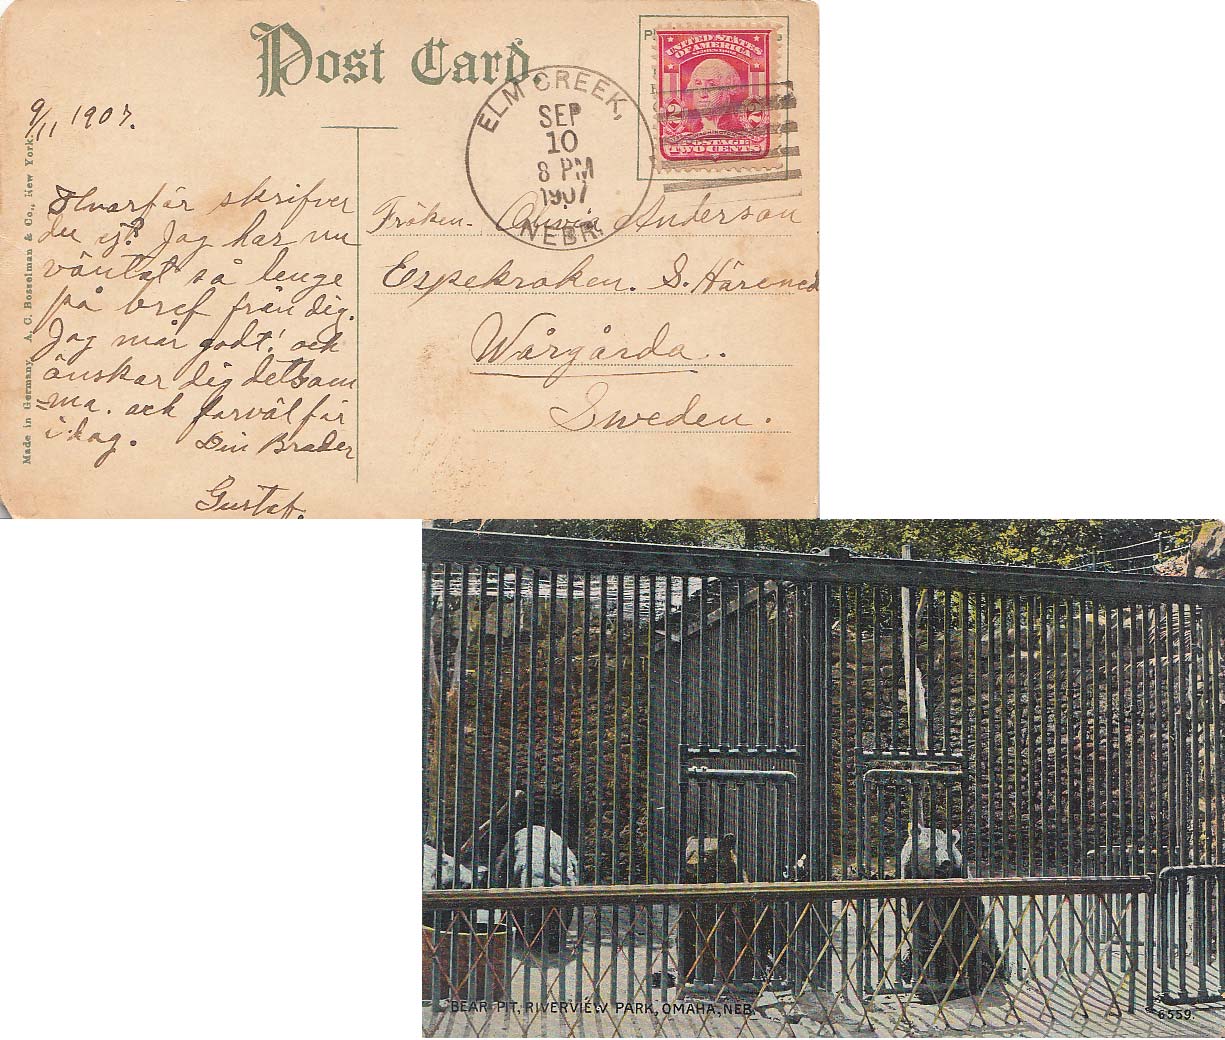 Post Card.
9/11 1907.
ELM CREEK,
SEP
10
8 PM
1907
NEBR.
UNITED STATES
OF AMERICA
POSTAGE
TWO CENTS
Made in Germany. A. C. Bosselman & Co., New York.
Hvarför skrifver
du ej? Jag har nu
väntat så lenge
på bref från dig.
Jag mår godt! och
önskar dig detsam
=ma. och farväl för
i dag. Din Broder
Gustaf.
Fröken. Anderson
Espekroken. S. Härened
Wårgårda.
Sweden.
BEAR PIT, RIVERVIEW PARK, OMAHA, NEB.
6559.